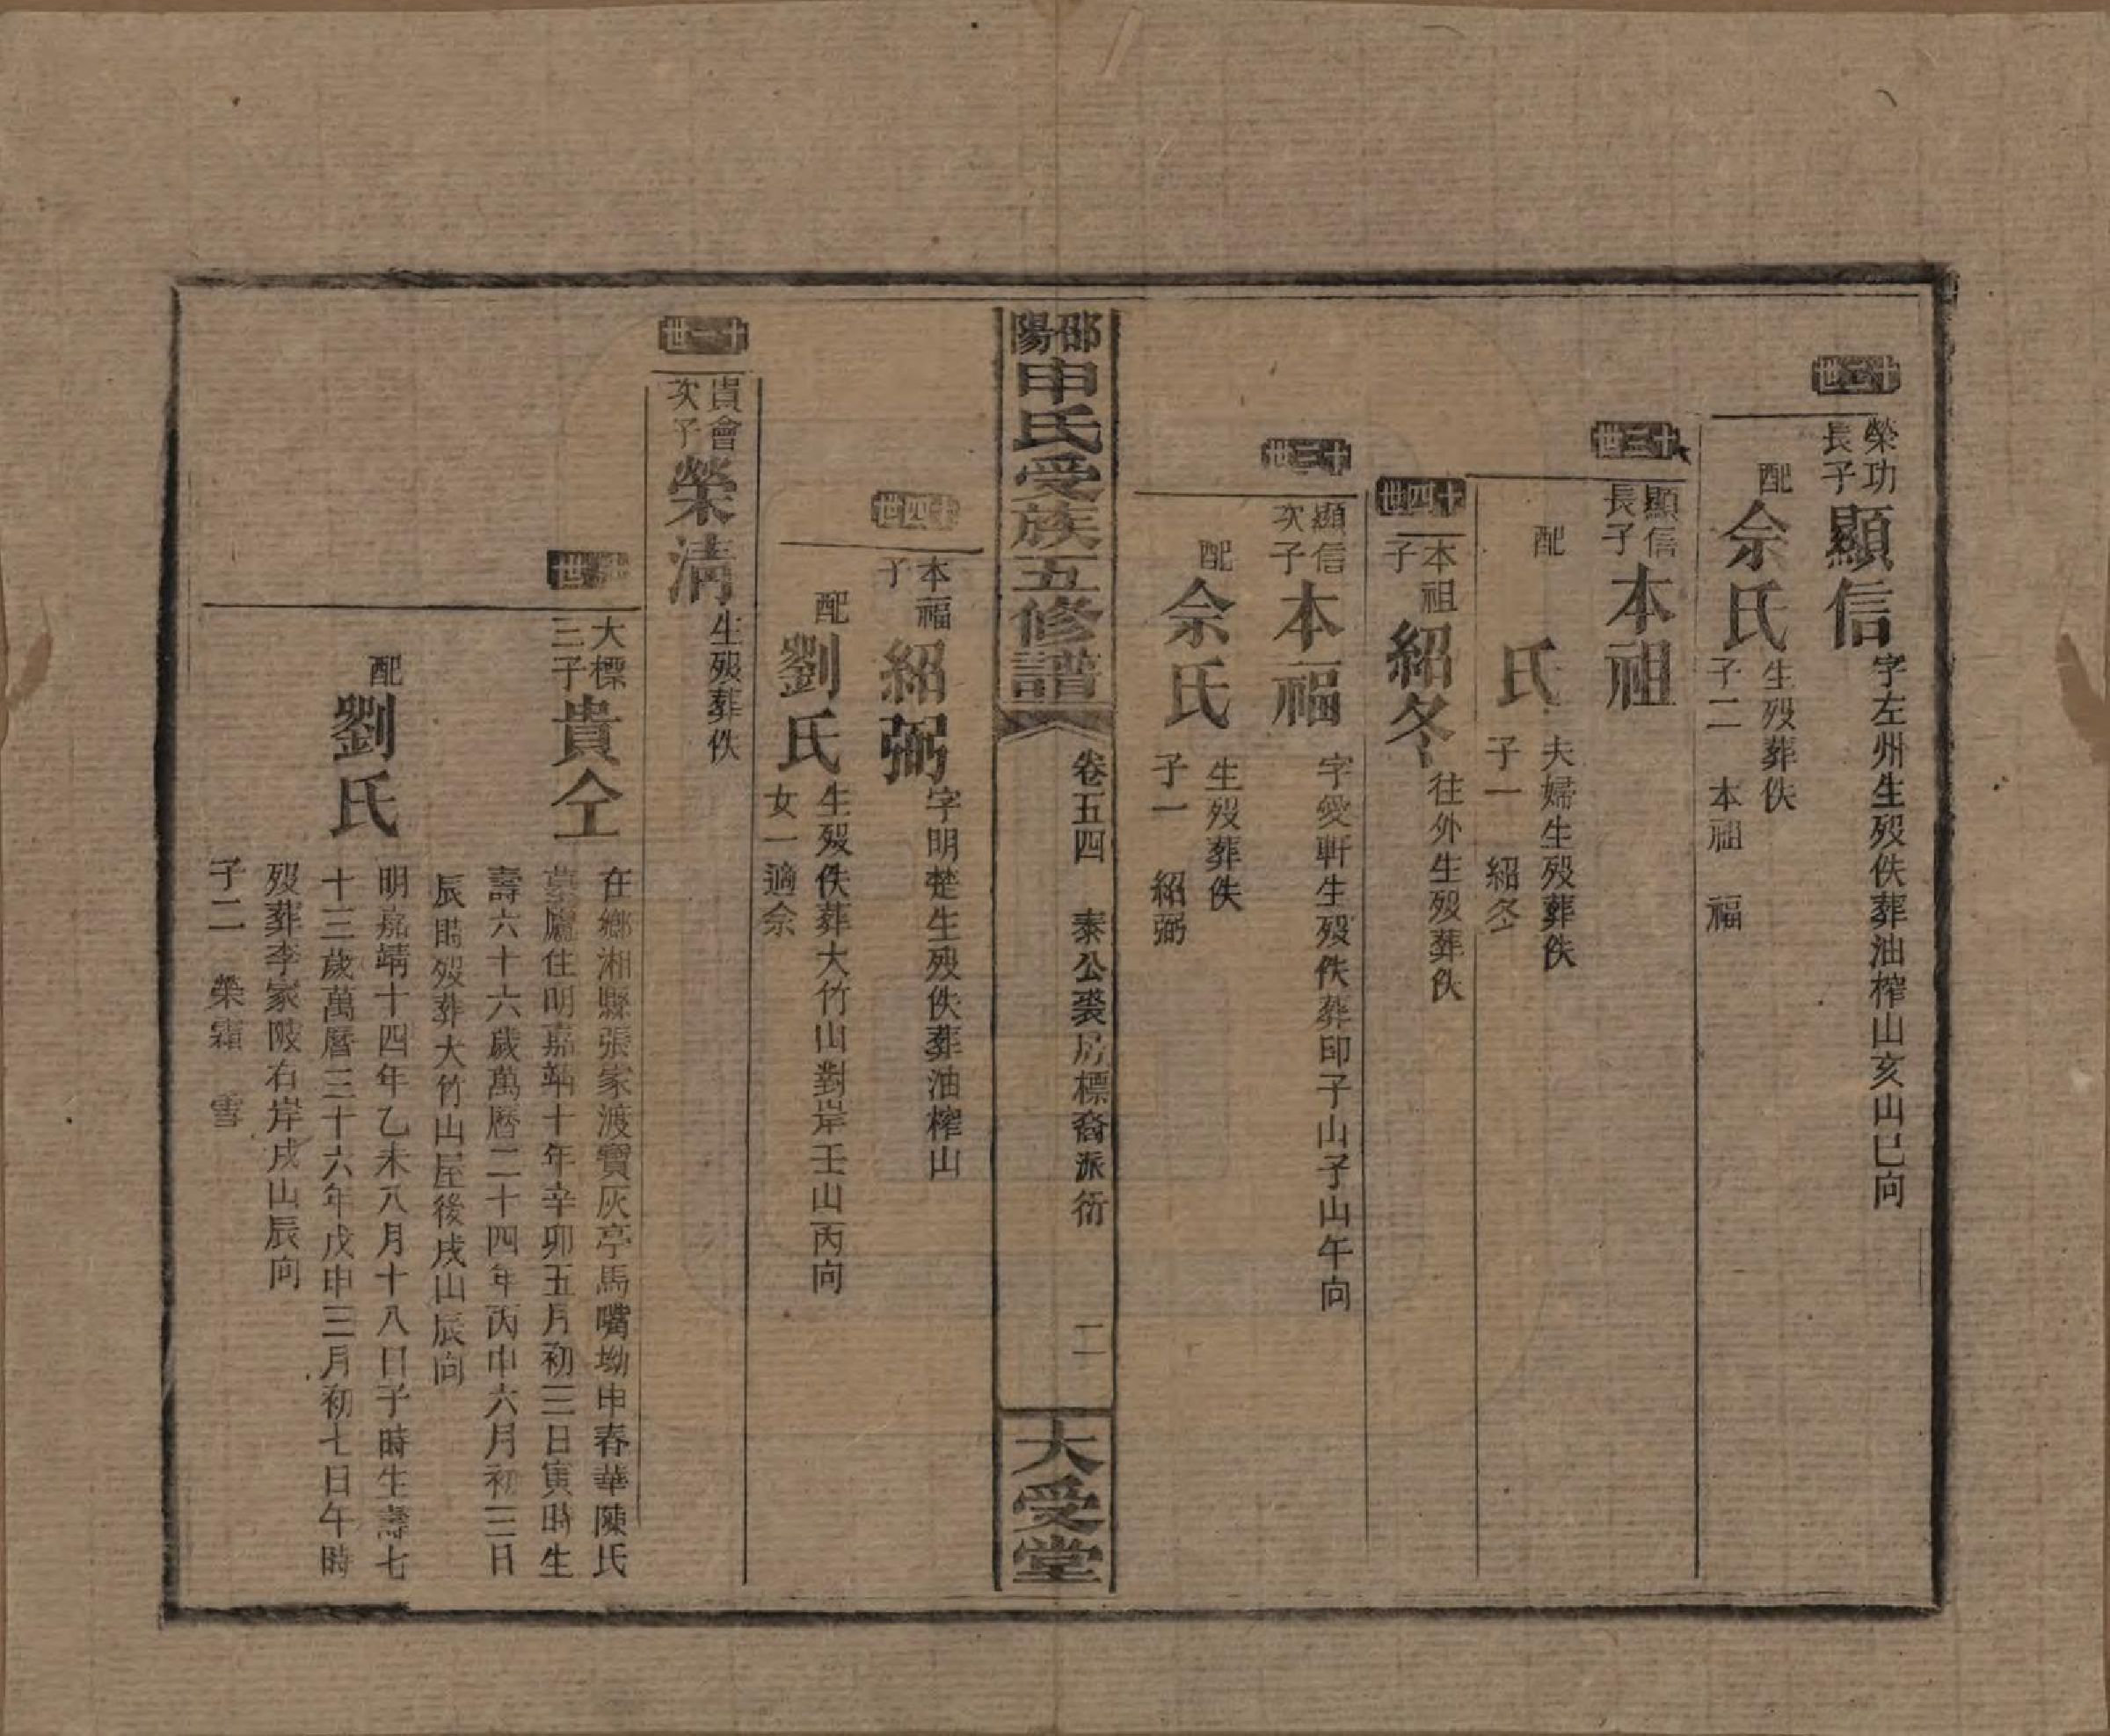 十二世
榮功
長子
顯信
字左州生歿佚葬油榨山亥山巳向
配
佘氏
生歿葬佚
子二 本祖 福
十三世
顯信
長子
本祖
配 氏
夫婦生歿葬佚
子一 紹冬
十四世
本祖
子
紹冬
往外生歿葬佚
十三世
顯信
次子
本福
字愛軒生歿佚葬印子山子山午向
配
佘氏
生歿葬佚
子一 紹弼
邵陽申氏受族五修譜
卷五四 泰公裘房標裔派衍
二
大受堂
十四世
本福
子
紹弼
字明楚生歿佚葬油榨山
配
劉氏
生歿佚葬大竹山對岸壬山丙向
女一適佘
十一世
貴會
次子
榮清
生歿葬佚
十世
大標
三子
貴仝
在鄉湘縣張家渡寶灰亭馬嘴坳申春華陳氏
墓廬住明嘉靖十年辛卯五月初三日寅時生
壽六十六歲萬曆二十四年丙申六月初三日
辰時歿葬大竹山屋後戌山辰向
配
劉氏
明嘉靖十四年乙未八月十八日子時生壽七
十三歲萬曆三十六年戊申三月初七日午時
歿葬李家陂右岸戌山辰向
子二 榮霜 雪